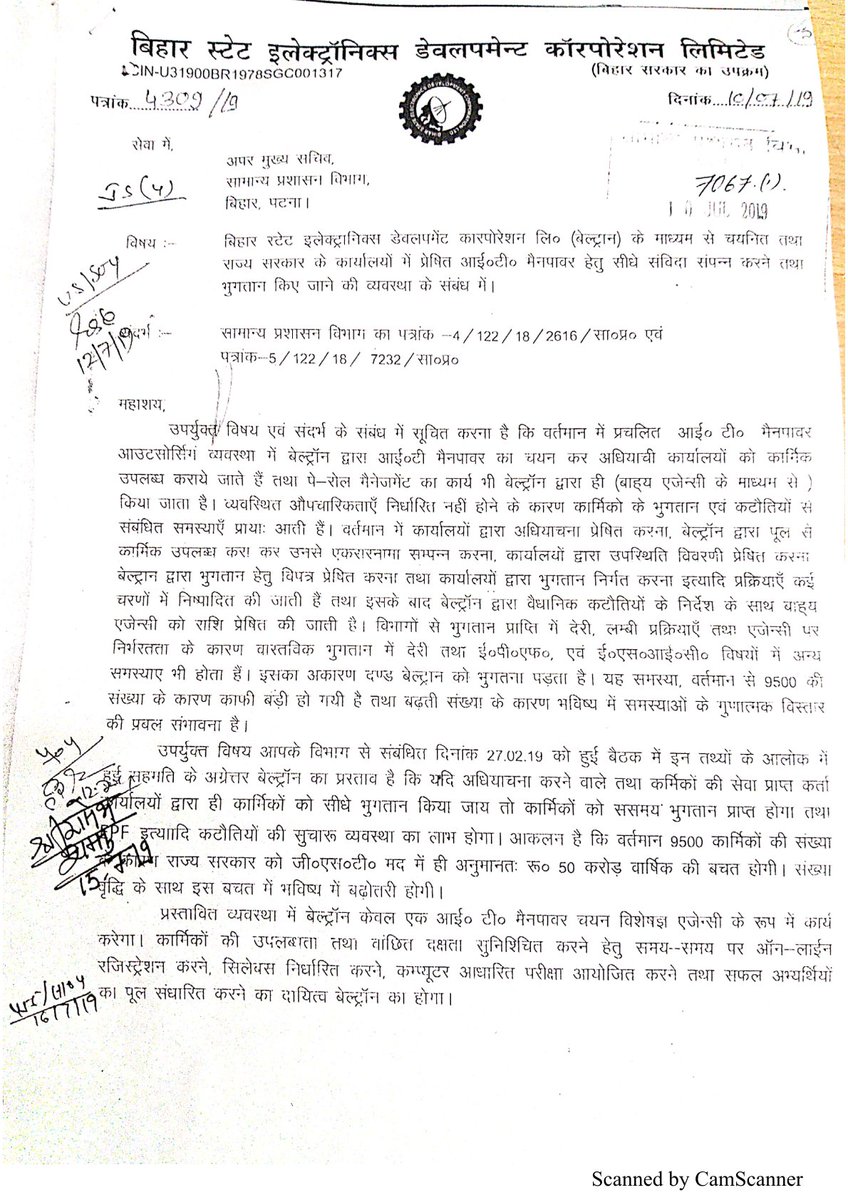 बिहार स्टेट इलेक्ट्रॉनिक्स डेवलपमेन्ट कॉरपोरेशन लिमिटेड
CIN-U31900BR1978SGC001317
(बिहार सरकार का उपक्रम)
पत्रांक 4309/19
दिनांक 10/07/19
सेवा में,
अपर मुख्य सचिव,
सामान्य प्रशासन विभाग,
बिहार, पटना।
JS(4)
7067(1).
10 JUL 2019
विषय :- बिहार स्टेट इलेक्ट्रानिक्स डेवलपमेंट कारपोरेशन लि० (बेल्ट्रान) के माध्यम से चयनित तथा
राज्य सरकार के कार्यालयों में प्रेषित आई०टी० मैनपावर हेतु सीधे संविदा संपन्न करने तथा
भुगतान किए जाने की व्यवस्था के संबंध में।
12/7/19
संदर्भ :- सामान्य प्रशासन विभाग का पत्रांक -4/122/18/2616/सा०प्र० एवं
पत्रांक-5/122/18/ 7232/सा०प्र०
महाशय,
उपर्युक्त विषय एवं संदर्भ के संबंध में सूचित करना है कि वर्तमान में प्रचलित आई० टी० मैनपावर
आउटसोर्सिंग व्यवस्था में बेल्ट्रॉन द्वारा आई०टी मैनपावर का चयन कर अधियाची कार्यालयों को कार्मिक
उपलब्ध कराये जाते हैं तथा पे-रोल मैनेजमेंट का कार्य भी बेल्ट्रॉन द्वारा ही (बाह्य एजेन्सी के माध्यम से )
किया जाता है। व्यवस्थित औपचारिकताएँ निर्धारित नहीं होने के कारण कार्मिको के भुगतान एवं कटौतियों से
संबंधित समस्याएँ प्रायः आती हैं। वर्तमान में कार्यालयों द्वारा अधियाचना प्रेषित करना, बेल्ट्रॉन द्वारा पूल से
कार्मिक उपलब्ध करा कर उनसे एकरारनामा सम्पन्न करना, कार्यालयों द्वारा उपस्थिति विवरणी प्रेषित करना
बेल्ट्रान द्वारा भुगतान हेतु विपत्र प्रेषित करना तथा कार्यालयों द्वारा भुगतान निर्गत करना इत्यादि प्रक्रियाएँ कई
चरणों में निष्पादित की जाती हैं तथा इसके बाद बेल्ट्रॉन द्वारा वैधानिक कटौतियों के निर्देश के साथ बाह्य
एजेन्सी को राशि प्रेषित की जाती है। विभागों से भुगतान प्राप्ति में देरी, लम्बी प्रक्रियाएँ तथा एजेन्सी पर
निर्भरतता के कारण वास्तविक भुगतान में देरी तथा ई०पी०एफ०, एवं ई०एस०आई०सी० विषयों में अन्य
समस्याए भी होता हैं। इसका अकारण दण्ड बेल्ट्रान को भुगतना पड़ता है। यह समस्या, वर्तमान से 9500 की
संख्या के कारण काफी बड़ी हो गयी है तथा बढ़ती संख्या के कारण भविष्य में समस्याओं के गुणात्मक विस्तार
की प्रबल संभावना है।
उपर्युक्त विषय आपके विभाग से संबंधित दिनांक 27.02.19 को हुई बैठक में इन तथ्यों के आलोक में
हुई सहमति के अग्रेत्तर बेल्ट्रॉन का प्रस्ताव है कि यदि अधियाचना करने वाले तथा कर्मिकों की सेवा प्राप्त कर्ता
कार्यालयों द्वारा ही कार्मिकों को सीधे भुगतान किया जाय तो कार्मिकों को ससमय भुगतान प्राप्त होगा तथा
EPF इत्याादि कटौतियों की सुचारू व्यवस्था का लाभ होगा। आकलन है कि वर्तमान 9500 कार्मिकों की संख्या
के कारण राज्य सरकार को जी०एस०टी० मद में ही अनुमानतः रू० 50 करोड़ वार्षिक की बचत होगी। संख्या
वृद्धि के साथ इस बचत में भविष्य में बढ़ोतरी होगी।
15-7-19
प्रस्तावित व्यवस्था में बेल्ट्रॉन केवल एक आई० टी० मैनपावर चयन विशेषज्ञ एजेन्सी के रूप में कार्य
करेगा। कार्मिकों की उपलबाता तथा वांछित दक्षता सुनिश्चित करने हेतु समय--समय पर ऑन-लाईन
रजिस्ट्रेशन करने, सिलेबस निर्धारित करने, कम्प्यूटर आधारित परीक्षा आयोजित करने तथा सफल अभ्यर्थियों
का पूल संधारित करने का दायित्व बेल्ट्रॉन का होगा।
16/7/19
Scanned by CamScanner